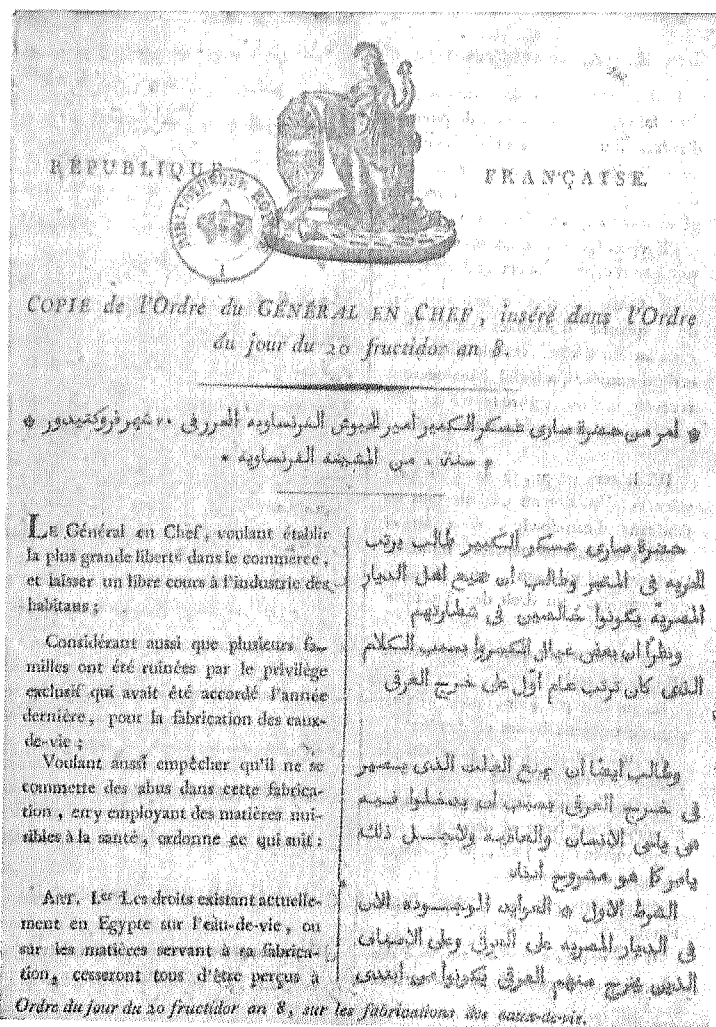 RÉPUBLIQUE FRANÇAISE
BIBLIOTHEQUE ROYALE
COPIE de l'Ordre du GÉNÉRAL EN CHEF, inséré dans l'Ordre
du jour du 20 fructidor an 8.
* امر من حضرة سارى عسكر الكبير امير الجيوش الفرنساويه المحرر فى ٢٠ شهر فروكتيدور *
* سنة ٨ من المشيخه الفرنساويه *
LE Général en Chef, voulant établir
la plus grande liberté dans le commerce,
et laisser un libre cours à l'industrie des
habitans ;
Considérant aussi que plusieurs fa-
milles ont été ruinées par le privilège
exclusif qui avait été accordé l'année
dernière, pour la fabrication des eaux-
de-vie ;
Voulant aussi empêcher qu'il ne se
commette des abus dans cette fabrica-
tion, en y employant des matières nui-
sibles à la santé, ordonne ce qui suit :
ART. I.er Les droits existant actuelle-
ment en Egypte sur l'eau-de-vie, ou
sur les matières servant à sa fabrica-
tion, cesseront tous d'être perçus à
حضرة سارى عسكر الكبير طالب يرتب
الحريه فى المتجر وطالب ان جميع اهل الديار
المصريه يكونوا خالصين فى شطارتهم
ونظرًا ان بعض عيال انكسروا بسبب الكلام
الذى كان ترتب عام اوّل على خرج العرقى
وطالب ايضًا ان يمنع الغلت الذى يصير
فى خرج العرقى بسبب ان يدخلوا فيه
ما يأدى الانسان والعافيه ولاجل ذلك
يامر كما هو مشروح ادناه
الشرط الاول * العوايد الموجوده الان
فى الديار المصريه على العرقى وعلى الاصناف
الذين يخرج منهم العرقى يكونوا من ابتدى
Ordre du jour du 20 fructidor an 8, sur les fabrications des eaux-de-vie.